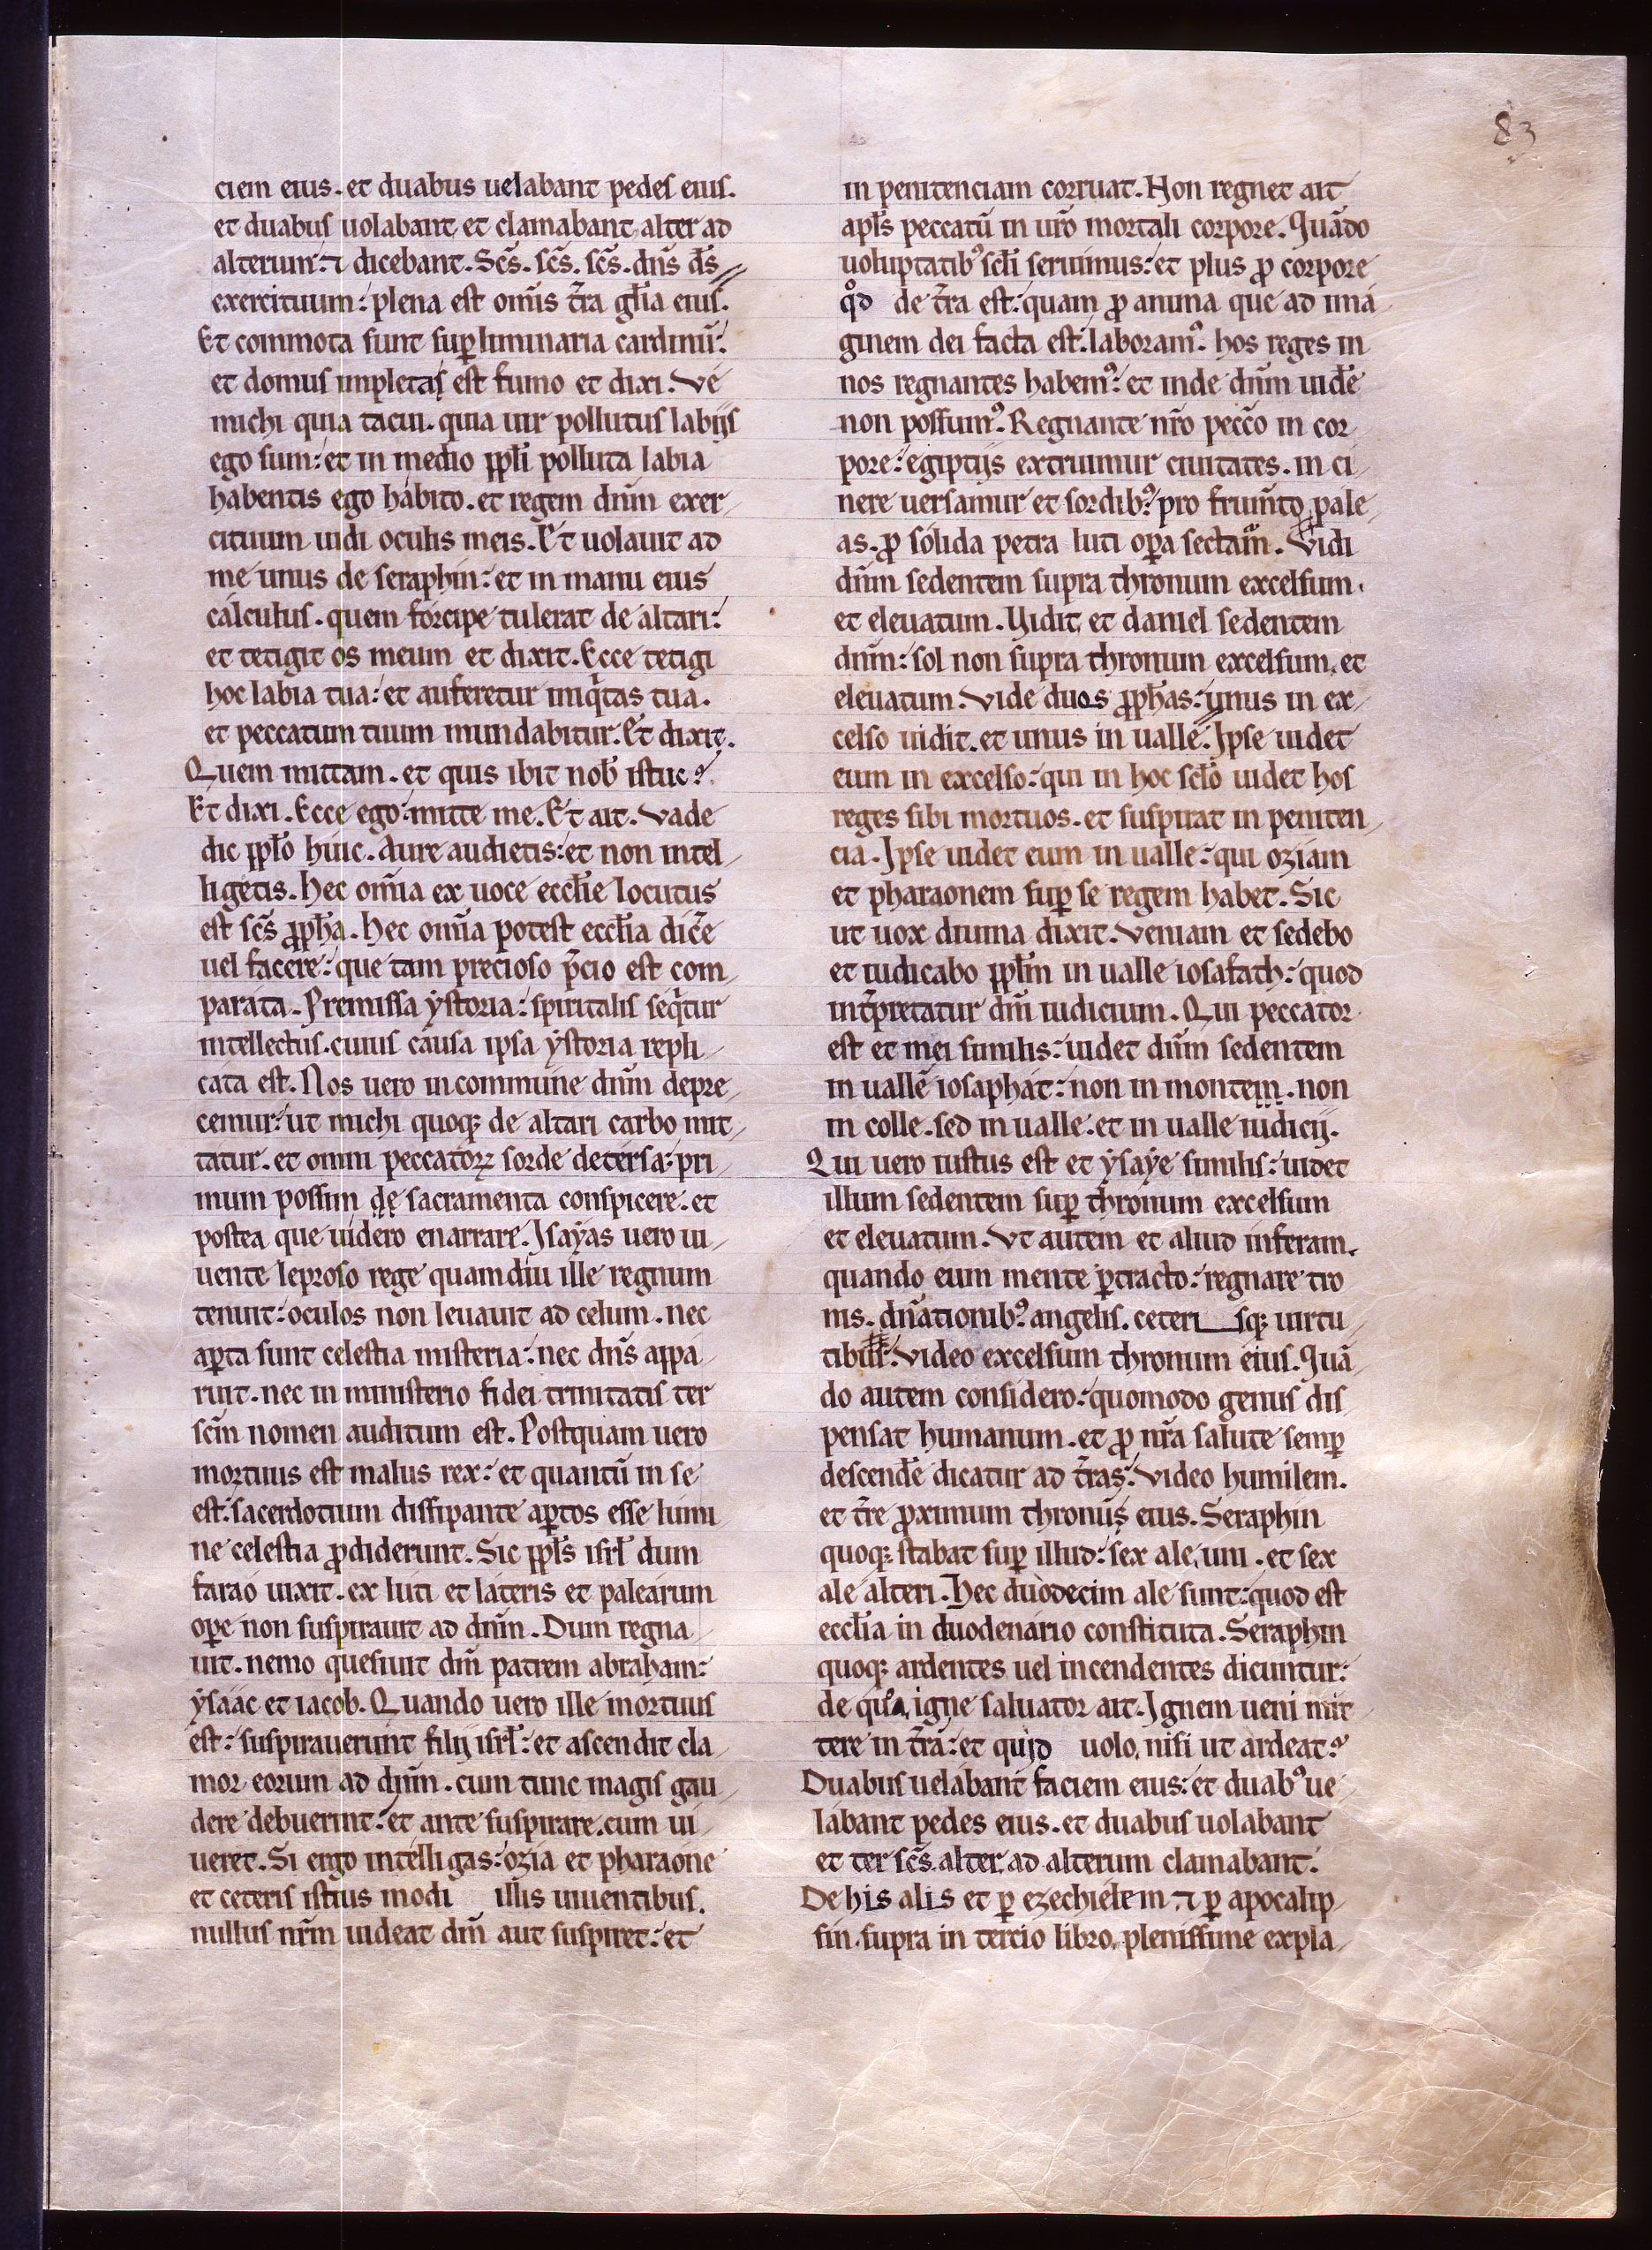 83
ciem eius. et duabus uelabant pedes eius.
et duabus uolabant et clamabant alter ad
alterum: ⁊ dicebant. Scs̄. scs̄. scs̄. dn̄s ds̄
exercituum: plena est om̄is t̄ra gl̄ia eius.
Et commota sunt suꝑ liminaria cardinū:
et domus impletas est fumo et dixi. Ve
michi quia tacui. quia uir pollutus labiis
ego sum: et in medio ppl̄i polluta labia
habentis ego habito. et regem dn̄m exer
cituum uidi oculis meis. Et uolauit ad
me unus de seraphin: et in manu eius
calculus. quem forcipe tulerat de altari:
et tetigit os meum et dixit. Ecce tetigi
hoc labia tua: et auferetur iniq̄tas tua.
et peccatum tuum mundabitur. Et dixit.
Quem mittam. et quis ibit nob̄ istuc?
Et dixi. Ecce ego: mitte me. Et ait. Vade
dic ppl̄o huic. Aure audietis: et non intel
ligetis. Hec om̄ia ex uoce eccl̄ie locutus
est scs̄ ꝓph̄a. Hec om̄ia potest eccl̄ia dic̄e
uel facere: que tam precioso p̄cio est com
parata. Premissa ẏstoria: spiritalis seq̄tur
intellectus. cuius causa ipsa ẏstoria repli
cata est. Nos uero in commune dn̄m depre
cemur: ut michi quoqꝫ de altari carbo mit
tatur. et omni peccatoꝝ sorde detersa: pri
mum possim de sacramenta conspicere. et
postea que uidero enarrare. Isaẏas uero ui
uente leproso rege quamdiu ille regnum
tenuit: oculos non leuauit ad celum. nec
aꝑta sunt celestia misteria: nec dn̄s appa
ruit. nec in ministerio fidei trinitatis ter
scm̄ nomen auditum est. Postquam uero
mortuus est malus rex: et quantū in se
est: sacerdotium dissipante aꝑtos esse lumi
ne celestia ꝓdiderunt. Sic ppl̄s isrl̄ dum
farao uixit. ex luti et lateris et palearum
oꝑe non suspirauit ad dn̄m. Dum regna
uit. nemo quesiuit dm̄ patrem abraham:
ẏsaac et iacob. Quando uero ille mortuus
est: suspirauerunt filij isrl̄: et ascendit cla
mor eorum ad dn̄m. cum tunc magis gau
dere debuerint. et ante suspirare. cum ui
ueret. Si ergo intelligas: ozia et pharaone
et ceteris istius modi illis uiuentibus.
nullus nr̄m uideat dm̄ aut suspiret: et
in penitenciam corruat. Non regnet ait
apl̄s peccatū in ur̄o mortali corpore. Quādo
uoluptatibꝰ scl̄i seruimus: et plus ꝓ corpore
qͦd de t̄ra est: quam ꝓ anima que ad ima
ginem dei facta est: laboramꝰ. hos reges in
nos regnantes habemꝰ: et inde dn̄m uid̄e
non possumꝰ. Regnante nr̄o pecc̄o in cor
pore: egiptijs extruimur ciuitates. in ci
nere uersamur et sordibꝰ: pro frum̄to pale
as. ꝓ solida petra luti oꝑa sectam̄. Vidi
dn̄m sedentem supra thronum excelsum.
et eleuatum. Uidit et daniel sedentem
dn̄m: sol non supra thronum excelsum. et
eleuatum. Vide duos ꝓph̄as: unus in ex
celso uidit. et unus in ualle. Ipse uidet
eum in excelso: qui in hoc scl̄o uidet hos
reges sibi mortuos. et suspirat in peniten
cia. Ipse uidet eum in ualle: qui oziam
et pharaonem suꝑ se regem habet. Sic
ut uox diuina dixit. Veniam et sedebo
et iudicabo ppl̄m in ualle iosafath: quod
int̄pretatur dm̄ iudicium. Qui peccator
est et mei similis: uidet dn̄m sedentem
in ualle iosaphat: non in montem. non
in colle. sed in ualle. et in ualle iudicij.
Qui uero iustus est et ẏsaẏe similis: uidet
illum sedentem suꝑ thronum excelsum
et eleuatum. Vt autem et aliud inferam.
quando eum mente ꝑtracto: regnare tro
nis. dn̄ationibꝰ: angelis. ceteri sqꝫ uirtu
tibus: Video excelsum thronum eius. Quā
do autem considero: quomodo genus dis
pensat humanum. et ꝓ nr̄a salute semꝑ
descend̄e dicatur ad t̄ras: Video humilem.
et t̄re ꝓximum thronus eius. Seraphin
quoqꝫ stabat suꝑ illud: sex ale uni. et sex
ale alteri. Hec duodecim ale sunt: quod est
eccl̄ia in duodenario constituta. Seraphin
quoqꝫ ardentes uel incendentes dicuntur:
de quo igne saluator ait. Ignem ueni mit
tere in t̄ra: et quid uolo nisi ut ardeat?
Duabus uelabant faciem eius: et duabꝰ ue
labant pedes eius. et duabus uolabant
et ter scs̄ alter ad alterum clamabant.
De his alis et ꝑ ezechielem ⁊ ꝑ apocalip
sin. supra in tercio libro. plenissime expla